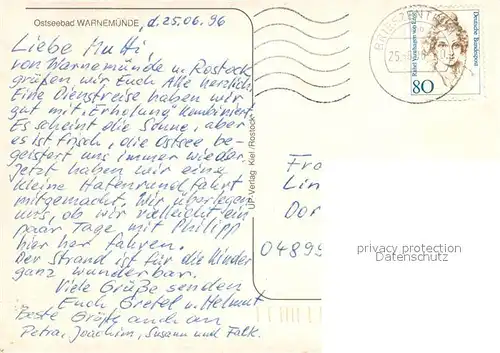 Ostseebad WARNEMÜNDE, d. 25.06.96
Liebe Mutti
von Warnemünde u. Rostock
grüßen wir Euch Alle herzlich
Eine Dienstreise haben wir
gut mit „Erholung" kombiniert.
Es scheint die Sonne, aber
es ist frisch, die Ostsee be-
geistert uns immer wieder.
Jetzt haben wir eine
kleine Hafenrundfahrt
mitgemacht. Wir überlegen
uns, ob wir vielleicht ein
paar Tage mit Philipp
hier her fahren.
Der Strand ist für die Kinder
ganz wunderbar.
Viele Grüße senden
Euch Gretel u. Helmut
Beste Grüße auch an
Petra, Joachim, Susann und Falk.
UP-Verlag Kiel/Rostock
BRIEFZENTRUM
25
Rahel Varnhagen von Ense
Deutsche Bundespost
80
Fra
Lin
Dor
04899
privacy protection
Datenschutz